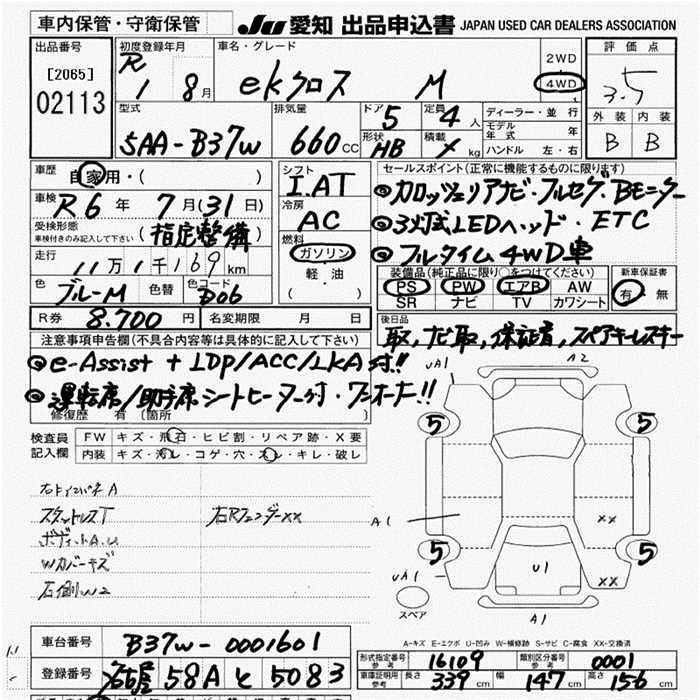 車内保管・守衛保管
JU 愛知 出品申込書 JAPAN USED CAR DEALERS ASSOCIATION
出品番号
[2065]
02113
初度登録年月
R 1 8月
車名・グレード
ekクロス M
2WD
4WD
評価点
3.5
外装 内装
B B
型式
5AA-B37W
排気量
660cc
ドア 5
定員 4人
形状 HB
積載 kg
ディーラー・並行
モデル年式 年
ハンドル 左・右
車歴
自家用・( )
車検
R6年 7月(31日)
受検形態
車検付きのみ記入して下さい
(指定整備)
走行
11万1千169km
色 ブルーM
色替
色コード D06
シフト
I.AT
冷房
AC
燃料
ガソリン
軽・油
( )
セールスポイント(正常に機能するものに限ります)
◎カロッツェリアナビ・フルセグ・Bモニター
◎3灯式LEDヘッド・ETC
◎フルタイム4WD車
装備品(純正品に限り○をつけてください)
PS PW エアB AW
SR ナビ TV カワシート
新車保証書
有・無
R券 8.700円
名変期限 月 日
後日品
取,ナビ取,保証書,スペアキーレスキー
注意事項申告欄(不具合内容等は具体的に記入して下さい)
◎e-Assist + LDP/ACC/LKA付!!
◎運転席/助手席シートヒーター付・ワンオーナー!!
修復歴 有 〔箇所
検査員記入欄
FW キズ・飛石・ヒビ割・リペア跡・X要
内装 キズ・汚レ・コゲ・穴・スレ・キレ・破レ
スタットレスT
右RフェンダーXX
Wカバーキズ
右側W2
UA1
A2
5
5
A1
XX
5
5
UA1
U1
XX
スペア
A1
A-キズ E-エクボ U-凹み W-補修跡 S-サビ C-腐食 XX-交換済
車台番号
B37W-0001601
登録番号
名古屋 58A と 5083
形式指定番号 参考 16109
類別区分番号 参考 0001
車庫証明用 参考 長さ 339cm 幅 147cm 高さ 156cm